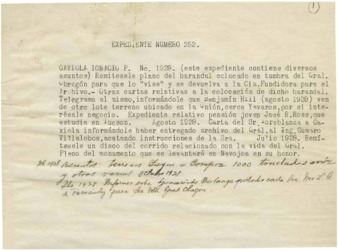 (1)
EXPEDIENTE NUMERO 252.
GAXIOLA IGNACIO P. No. 1928. (este expediente contiene diversos
asuntos) Remítesele plano del barandal colocado en tumba del Gral.
Obregón para que lo "vise" y se devuelva a la Cía. Fundidora para el
Archivo.- Otras cartas relativas a la colocación de dicho barandal.
Telegrama al mismo, informándole que Benjamín Hill (agosto 1928) ven
de otro lote terreno ubicado en la Unión, cerca Yavaros, por si inté-
résale negocio. Expediente relativo pensión joven José R. Ross, que
estudia en Tucson. Agosto 1928. Carta del Sr. a Ga-
xiola informándole haber entregado archivo del Gral. al Ing. Camaro
Villalobos, acatando instrucciones de la Sra. Julio 1928. Remí-
tesele un disco del corrido relacionado con la vida del Gral.
Plano del monumento que se levantará en Navojoa en su honor.
1928 Asuntos: Compra 1000 toneladas
y otros varios Octubre 1928
1928 Informes sobre
para